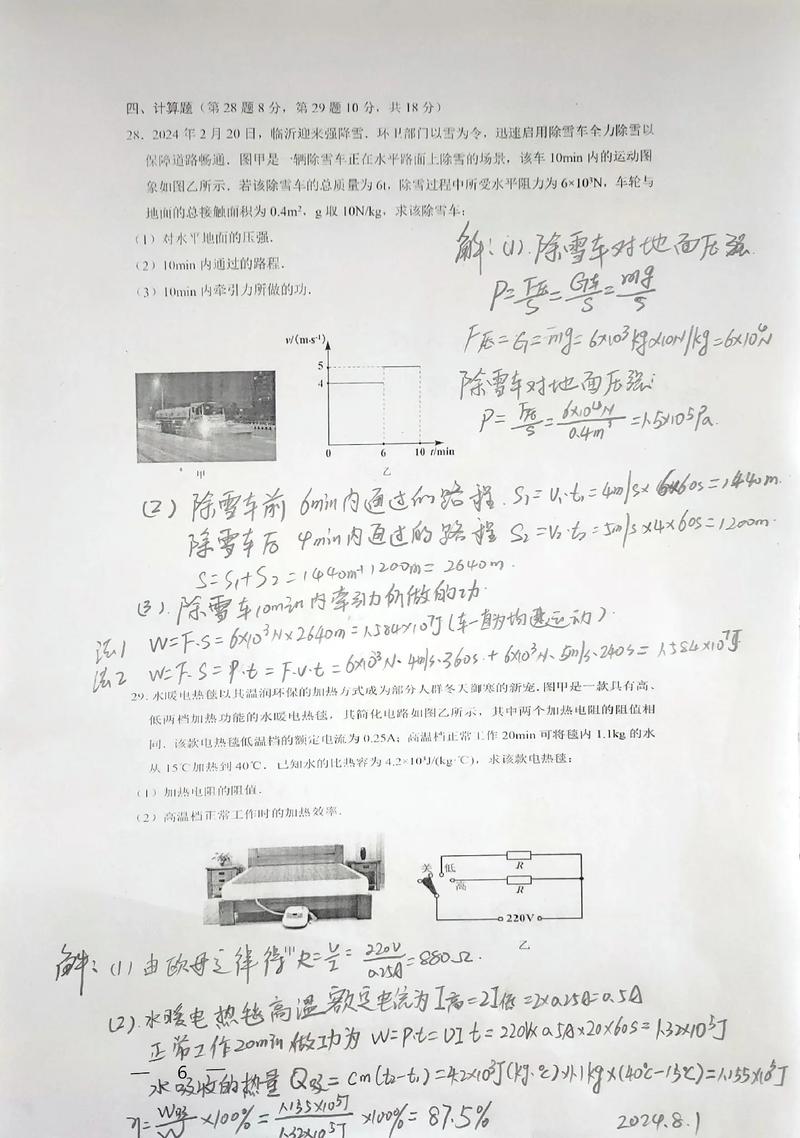 四、计算题（第 28 题 8 分，第 29 题 10 分，共 18 分）
28．2024 年 2 月 20 日，临沂迎来强降雪．环卫部门以雪为令，迅速启用除雪车全力除雪以
保障道路畅通．图甲是一辆除雪车正在水平路面上除雪的场景，该车 10min 内的运动图
象如图乙所示．若该除雪车的总质量为 6t，除雪过程中所受水平阻力为 6×10³N，车轮与
地面的总接触面积为 0.4m²，g 取 10N/kg，求该除雪车：
（1）对水平地面的压强．
（2）10min 内通过的路程．
（3）10min 内牵引力所做的功．
解：(1).除雪车对地面压强
P=F压/S=G车/S=mg/S
F压=G=mg=6×10³kg×10N/kg=6×10⁴N
除雪车对地面压强：
P=F压/S=6×10⁴N/0.4m²=1.5×10⁵Pa.
v/(m·s⁻¹)
5
4
0 6 10 t/min
甲
乙
(2) 除雪车前 6min内通过的路程. S₁=V₁·t₁=4m/s×6×60s=1440m.
除雪车后 4min内通过的路程 S₂=V₂·t₂=5m/s×4×60s=1200m.
S=S₁+S₂=1440m+1200m=2640m.
(3).除雪车10min内牵引力所做的功.
法1 W=F·S=6×10³N×2640m=1.584×10⁷J(车一直为匀速运动).
法2 W=F·S=P·t=F·v·t=6×10³N·4m/s·360s+6×10³N·5m/s·240s=1.584×10⁷J
29．水暖电热毯以其温润环保的加热方式成为部分人群冬天御寒的新宠．图甲是一款具有高、
低两档加热功能的水暖电热毯，其简化电路如图乙所示，其中两个加热电阻的阻值相
同．该款电热毯低温档的额定电流为 0.25A；高温档正常工作 20min 可将毯内 1.1kg 的水
从 15℃加热到 40℃．已知水的比热容为 4.2×10³J/(kg·℃)，求该款电热毯：
（1）加热电阻的阻值．
（2）高温档正常工作时的加热效率．
关 低 R
高 R
220V
乙
解：(1) 由欧姆定律得 R=U/I=220V/0.25A=880Ω.
(2).水暖电热毯高温额定电流为I高=2I低=2×0.25A=0.5A
正常工作20min做功为 W=P·t=UIt=220V×0.5A×20×60s=1.32×10⁵J
水吸收的热量 Q吸=cm(t₂-t₁)=4.2×10³J/(kg·℃)×1.1kg×(40℃-15℃)=1.155×10⁵J
6
η=W吸/W×100%=1.155×10⁵J/1.32×10⁵J×100%=87.5%
2024.8.1